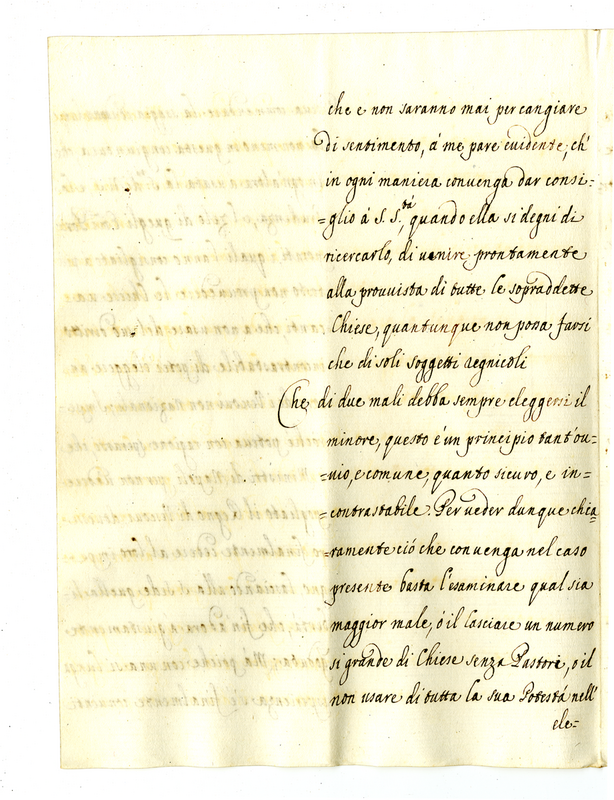 che e non saranno mai per cangiare
di sentimento, á me pare evidente, ch'
in ogni maniera convenga dar consi=
=glio á S. S.tá, quando ella si degni di
ricercarlo, di venire prontamente
alla provvista di tutte le sopraddette
Chiese, quantunque non possa farsi
che di soli soggetti regnicoli
Che di due mali debba sempre eleggersi il
minore, questo é un principio tant'ov=
=vio, e comune, quanto sicuro, e in=
=contrastabile. Per veder dunque chia
=ramente ció che convenga nel caso
presente basta l'esaminare qual sia
maggior male, ó il lasciare un numero
si grande di Chiese senza Pastore, o il
non usare di tutta la sua Potestá nell'
ele=